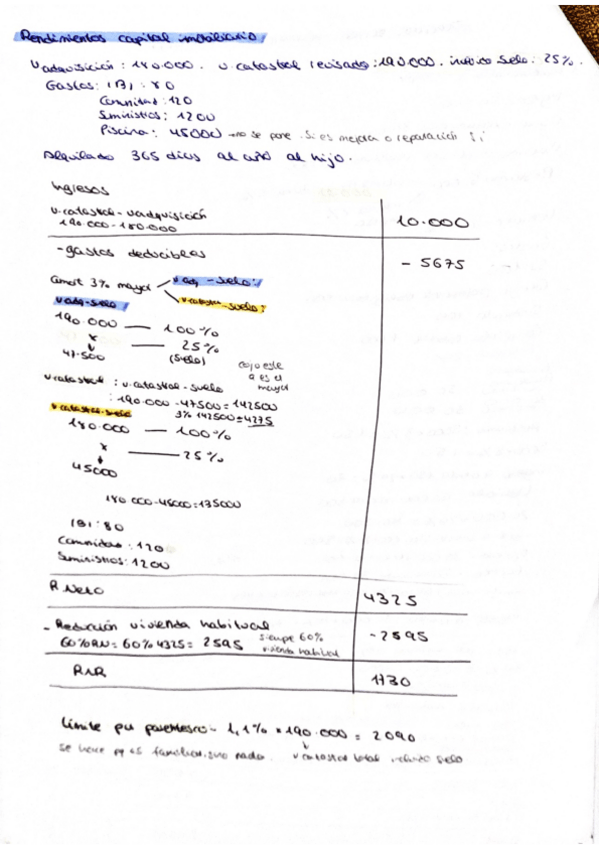 Rendimientos capital inmobiliario
V adquisición: 180.000. v. catastral revisado: 190.000. indico suelo: 25%.
Gastos: IBI: 80
Comunidad: 120
Suministros: 1200
Piscina: 45000 →no se pone. Si es mejora o reparación
Alquilado 365 días al año al hijo.
Ingresos
v. catastral - v adquisición
190.000 - 180.000
10.000
- gastos deducibles
- 5675
Amort 3% mayor
v adq - suelo:
v catastral - suelo:
v adq - suelo
190.000 — 100%
x — 25%
47.500 (suelo)
cojo este
q es el
mayor
v catastral: v. catastral - suelo
: 190.000 - 47500 = 142500
3% 142500 = 4275
v catastral - suelo
180.000 — 100%
x — 25%
45000
180 000 - 45000 = 135000
IBI: 80
Comunidad: 120
Suministros: 1200
R. Neto
4325
- Reducción vivienda habitual
60% RN = 60% 4325 = 2595
siempre 60%
vivienda habitual
- 2595
RNR
1730
Límite por parentesco - 1,1% × 190.000 = 2090
se hace pq es familiar, sino nada.
v catastral total incluido suelo